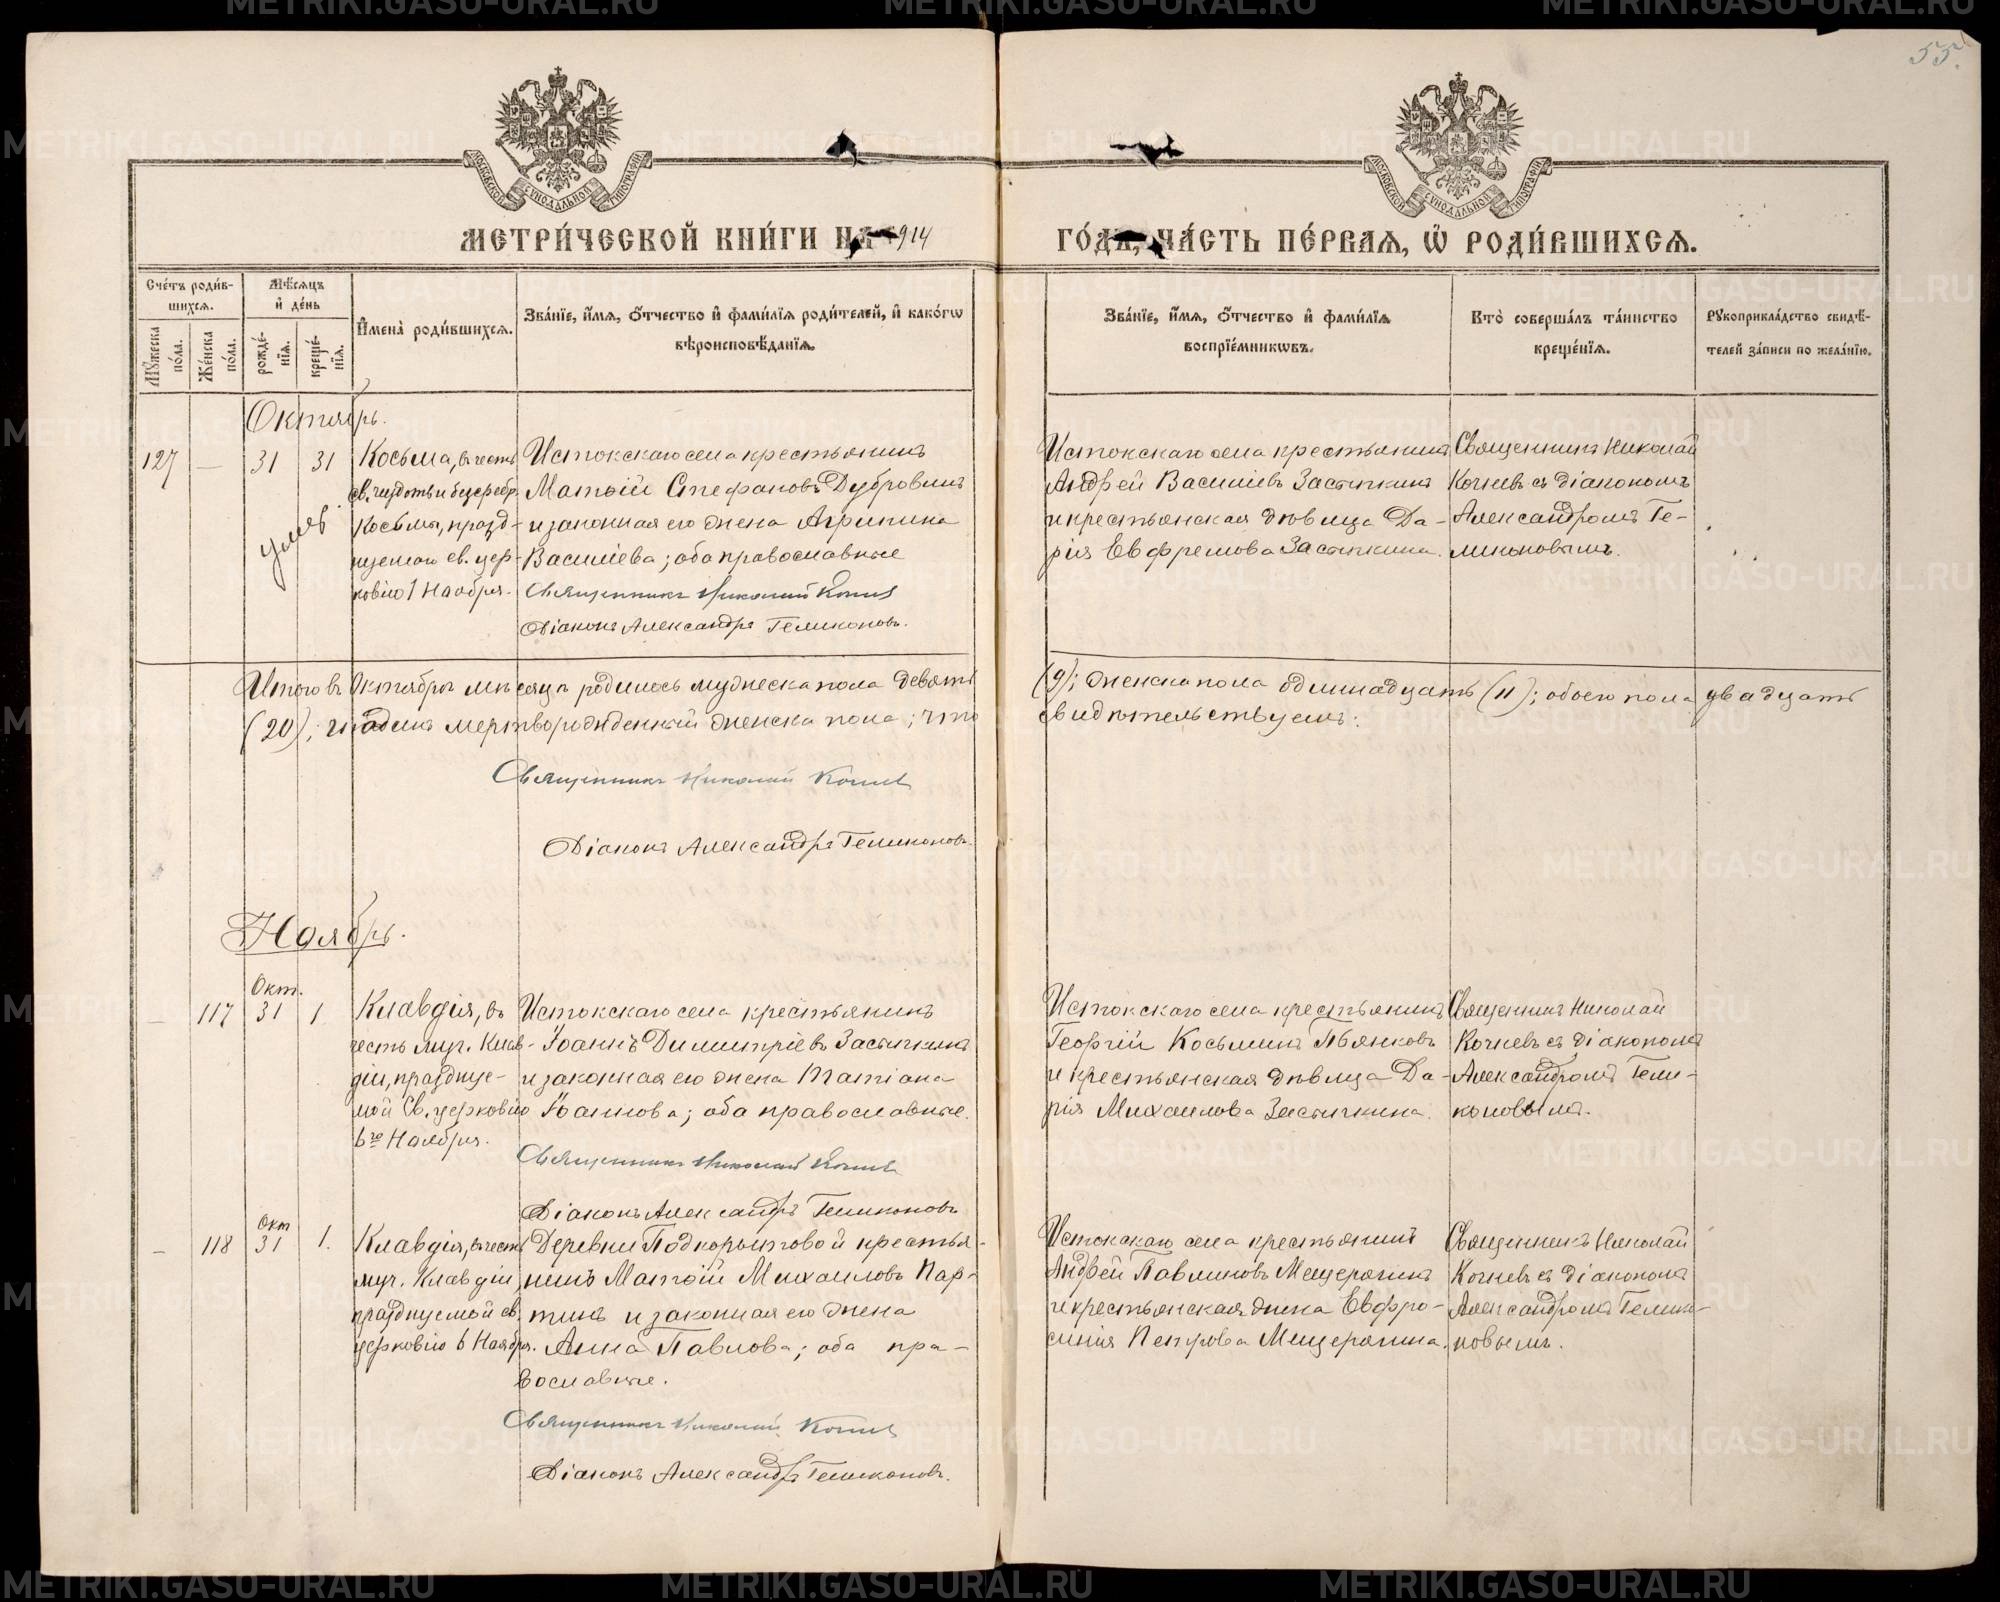 55.
МОСКОВСКОЙ СѴНОДАЛЬНОЙ ТИПОГРАФІИ
МОСКОВСКОЙ СѴНОДАЛЬНОЙ ТИПОГРАФІИ
МЕТРИ́ЧЕСКОЙ КНИ́ГИ НА 1914
ГО́ДЪ, ЧА́СТЬ ПЕ́РВАѦ, Ѽ РОДИ́ВШИХСѦ.
Сче́тъ роди́в-
шихсѧ.
Мѣ́сѧцъ
и҆ де́нь
Мꙋ́жеска
по́ла.
Же́нска
по́ла.
рожде́-
нїѧ.
креще́-
нїѧ.
И҆мена̀ роди́вшихсѧ.
Зва́нїе, и҆́мѧ, ѻ҆́тчество и҆ фами́лїѧ роди́телей, и҆ како́гѡ
вѣроисповѣ́данїѧ.
Зва́нїе, и҆́мѧ, ѻ҆́тчество и҆ фами́лїѧ
воспрїе́мникѡвъ.
Кто̀ соверша́лъ та́инство
креще́нїѧ.
Рꙋкоприкла́дство свидѣ́-
телей за́писи по жела́нїю.
Октябрь.
127 — 31 31
умер.
Косьма, въ честь
св. чудотв. и безсребр.
Косьмы, празд-
нуемаго св. цер-
ковію 1 Ноября.
Истокскаго села крестьянинъ
Матѳій Стефановъ Дубровинъ
и законная его жена Агрипина
Василіева; оба православные
Священникъ Николай Кочнев
Діаконъ Александръ Геликоновъ.
Истокскаго села крестьянинъ
Андрей Василіевъ Застычкинъ
и крестьянская дѣвица Да-
рія Евфремова Застычкина.
Священникъ Николай
Кочневъ съ діакономъ
Александромъ Ге-
ликоновымъ.
Итого въ Октябрѣ мѣсяцѣ родилось мужеска пола девять
(9); женска пола одиннадцать (11); обоего пола двадцать
(20); и одинъ мертворожденный женска пола; что
свидѣтельствуемъ:
Священникъ Николай Кочнев
Діаконъ Александръ Геликоновъ.
Ноябрь.
— 117 Окт. 31 1
Клавдія, въ
честь муч. Клав-
діи, празднуе-
мой Св. церковію
6го Ноября.
Истокскаго села крестьянинъ
Іоаннъ Димитріевъ Застычкинъ
и законная его жена Татіана
Іоаннова; оба православные.
Священникъ Николай Кочнев
Діаконъ Александръ Геликоновъ
Истокскаго села крестьянинъ
Георгій Косьминъ Пьянковъ
и крестьянская дѣвица Да-
рія Михаилова Застычкина.
Священникъ Николай
Кочневъ съ діакономъ
Александромъ Гели-
коновымъ.
— 118 Окт 31 1.
Клавдія, въ честь
муч. Клавдіи,
празднуемой св.
церковію 6 Ноября.
Деревни Подкорытовой крестья-
нинъ Матѳій Михаиловъ Пар-
тинъ и законная его жена
Анна Павлова; оба пра-
вославные.
Священникъ Николай Кочнев
Діаконъ Александръ Геликоновъ.
Истокскаго села крестьянинъ
Андрей Павлиновъ Мещерягинъ
и крестьянская жена Евфро-
синія Петрова Мещерягина.
Священникъ Николай
Кочневъ съ діакономъ
Александромъ Гелико-
новымъ.